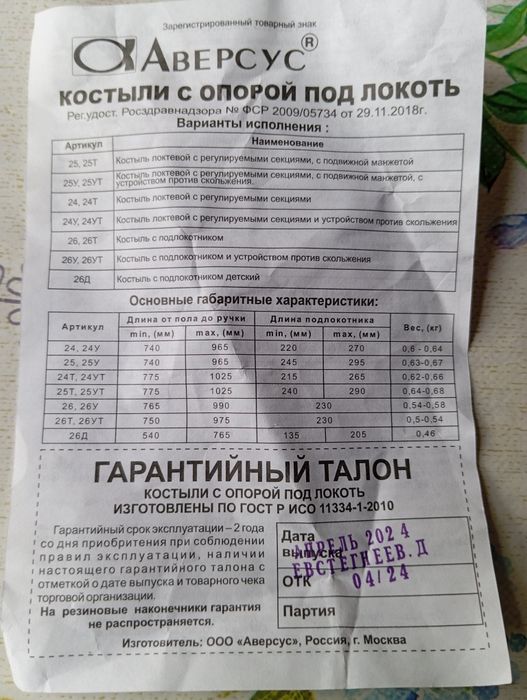 Зарегистрированный товарный знак
АВЕРСУС®
КОСТЫЛИ С ОПОРОЙ ПОД ЛОКОТЬ
Рег.удост. Росздравнадзора № ФСР 2009/05734 от 29.11.2018г.
Варианты исполнения :
Артикул Наименование
25, 25Т Костыль локтевой с регулируемыми секциями, с подвижной манжетой
25У, 25УТ Костыль локтевой с регулируемыми секциями, с подвижной манжетой, с
устройством против скольжения.
24, 24Т Костыль локтевой с регулируемыми секциями
24У, 24УТ Костыль локтевой с регулируемыми секциями и устройством против скольжения
26, 26Т Костыль с подлокотником
26У, 26УТ Костыль с подлокотником и устройством против скольжения
26Д Костыль с подлокотником детский
Основные габаритные характеристики:
Артикул Длина от пола до ручки Длина подлокотника Вес, (кг)
min, (мм) max, (мм) min, (мм) max, (мм)
24, 24У 740 965 220 270 0,6 - 0,64
25, 25У 740 965 245 295 0,63-0,67
24Т, 24УТ 775 1025 215 265 0,62-0,66
25Т, 25УТ 775 1025 240 290 0,64-0,68
26, 26У 765 990 230 0,54-0,58
26Т, 26УТ 750 975 230 0,5-0,54
26Д 540 765 135 205 0,46
ГАРАНТИЙНЫЙ ТАЛОН
КОСТЫЛИ С ОПОРОЙ ПОД ЛОКОТЬ
ИЗГОТОВЛЕНЫ ПО ГОСТ Р ИСО 11334-1-2010
Гарантийный срок эксплуатации – 2 года
со дня приобритения при соблюдении
правил эксплуатации, наличии
настоящего гарантийного талона с
отметкой о дате выпуска и товарного чека
торговой организации.
На резиновые наконечники гарантия
не распространяется.
Дата
выпуска
АПРЕЛЬ 2024
ЕВСТЕГНЕЕВ. Д
ОТК 04/24
Партия
Изготовитель: ООО «Аверсус», Россия, г. Москва